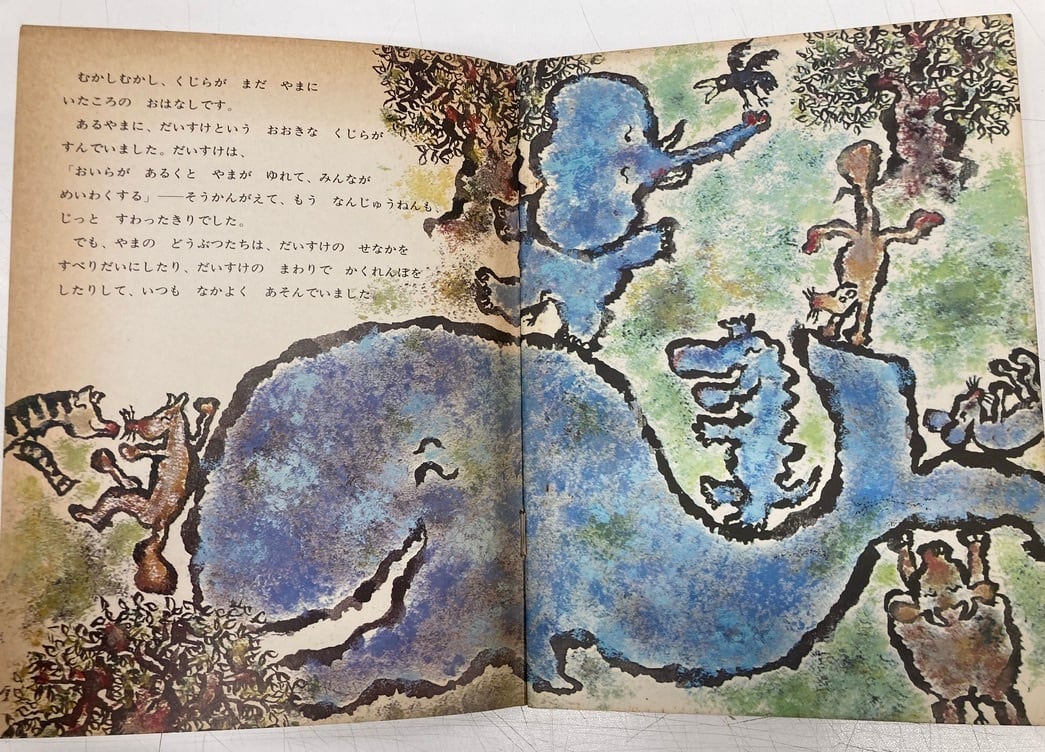 むかしむかし、くじらが　まだ　やまに
いたころの　おはなしです。
あるやまに、だいすけという　おおきな　くじらが
すんでいました。だいすけは、
「おいらが　あるくと　やまが　ゆれて、みんなが
めいわくする」――そうかんがえて、もう　なんじゅうねんも、
じっと　すわったきりでした。
でも、やまの　どうぶつたちは、だいすけの　せなかを
すべりだいにしたり、だいすけの　まわりで　かくれんぼを
したりして、いつも　なかよく　あそんでいました。